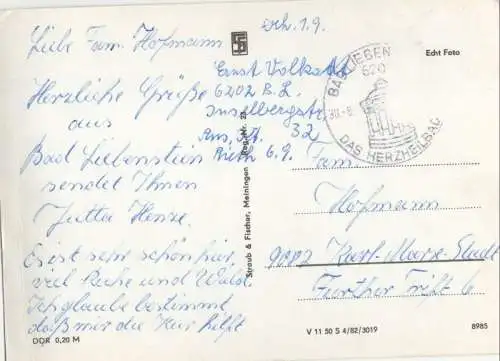 Liebe Fam. Hofmann
Herzliche Grüße
aus
Bad Liebenstein
sendet Ihnen
Jutta Henze.
Es ist sehr schön hier,
viel Ruhe und Wald.
Ich glaube bestimmt
daß mir die Kur hilft
DDR 0,20 M
erh. 1.9.
Ernst Volkstädt
6202 B.L.
Inselbergstr.
32
6.9.
Straub & Fischer, Meiningen Reg.-Nr. 23
Echt Foto
BAD LIEBEN
620
30.-8.
DAS HERZHEILBAD
Fam.
Hofmann
Karl-Marx-Stadt
Further Trift 6
V 11 50 S 4/82/3019
8985